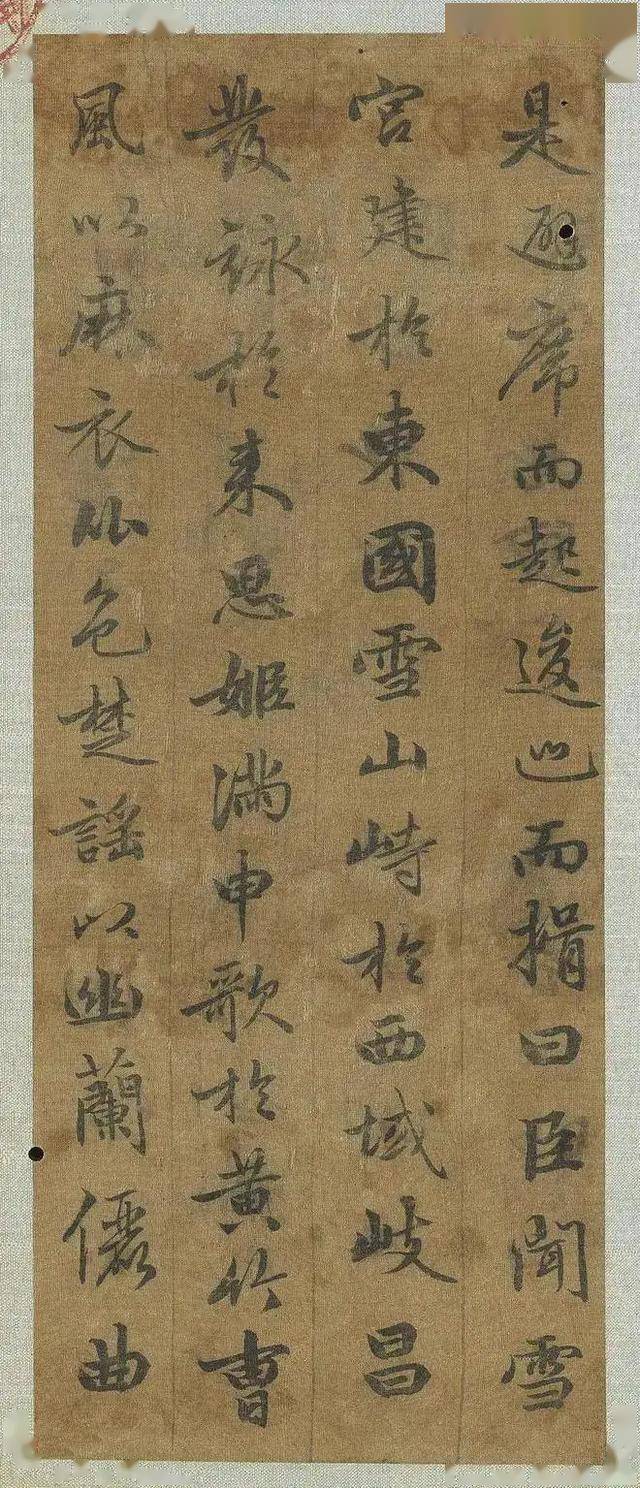 是避席而起逡巡而揖曰臣聞雪
宮建於東國雪山峙於西域岐昌
發詠於来思姬滿申歌於黄竹曹
風以麻衣比色楚謠以幽蘭儷曲